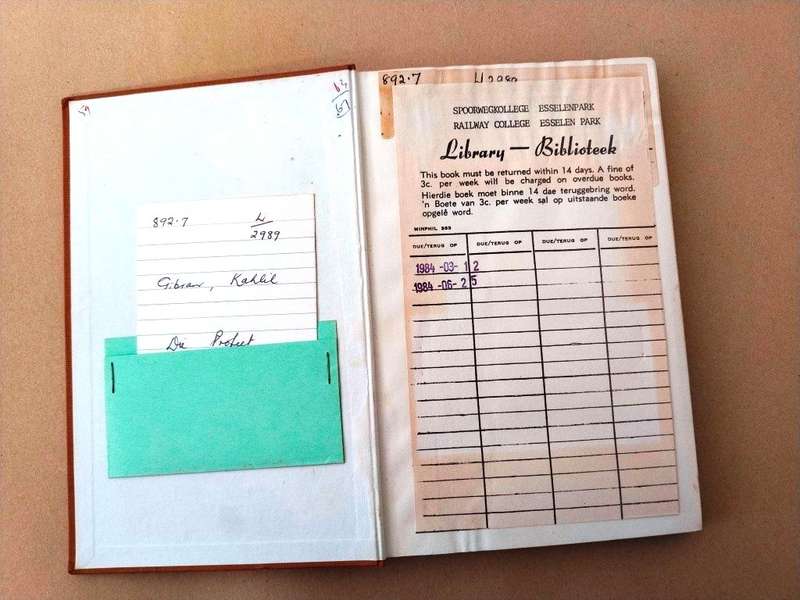 892.7 L
2989
Gibran, Kahlil
Die Profeet
892.7 L 2989
SPOORWEGKOLLEGE ESSELENPARK
RAILWAY COLLEGE ESSELEN PARK
Library — Biblioteek
This book must be returned within 14 days. A fine of
3c. per week will be charged on overdue books.
Hierdie boek moet binne 14 dae teruggebring word.
'n Boete van 3c. per week sal op uitstaande boeke
opgelê word.
WINPHIL 393
DUE/TERUG OP DUE/TERUG OP DUE/TERUG OP DUE/TERUG OP
1984 -03- 12
1984 -06- 25